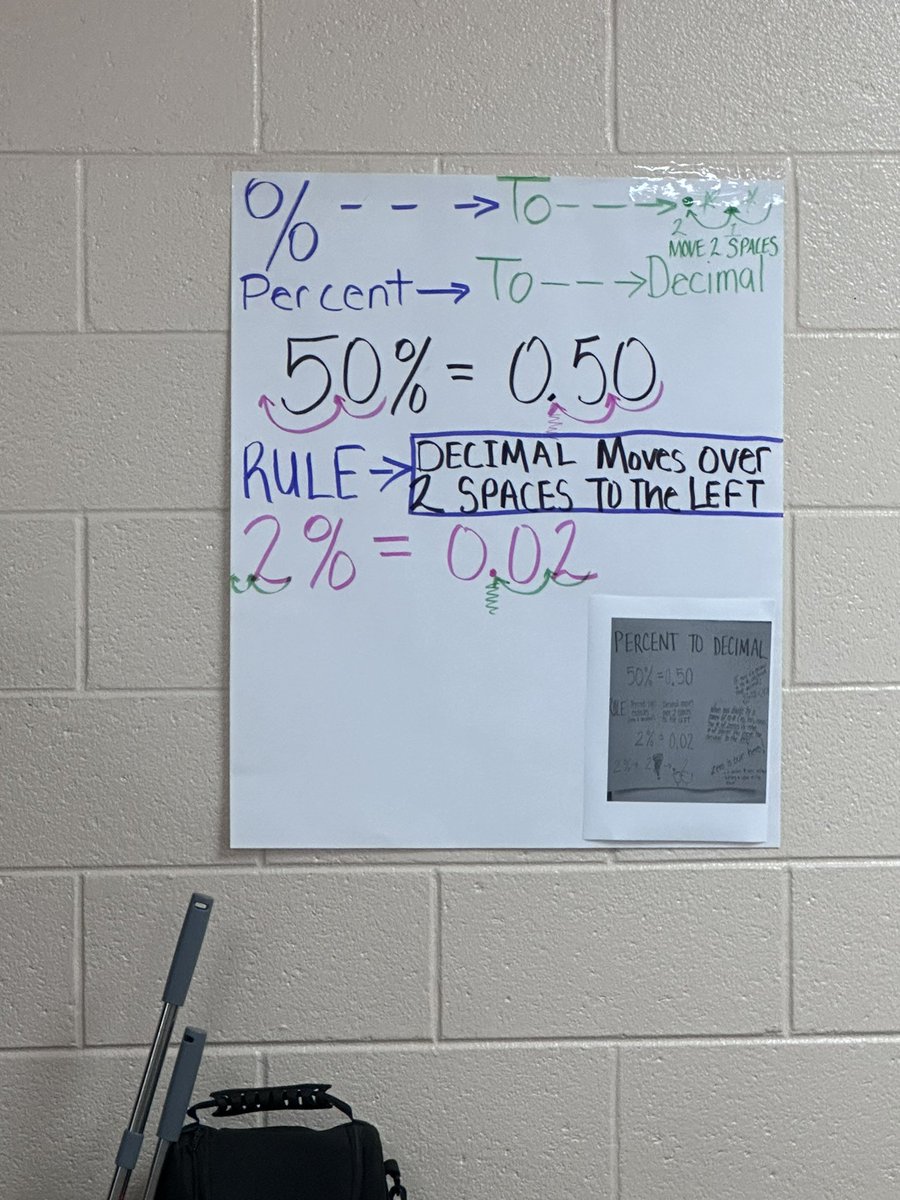 % - - → To - - → . x x
2 1
MOVE 2 SPACES
Percent → To - - - → Decimal
50% = 0.50
RULE → DECIMAL Moves over
2 SPACES TO The LEFT
2% = 0.02
PERCENT TO DECIMAL
50% = 0.50
2% = 0.02